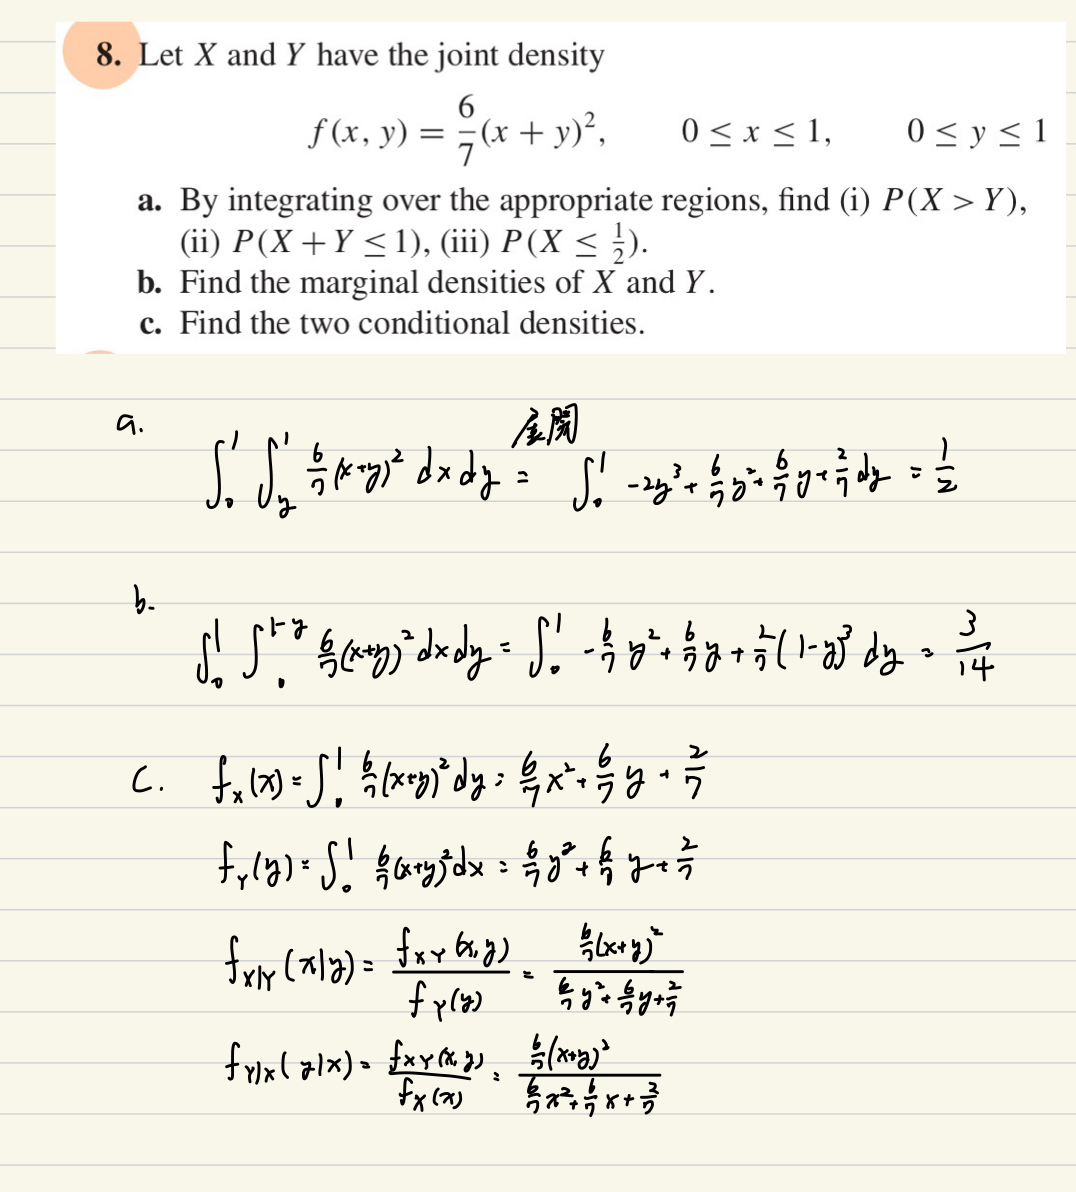 8. Let X and Y have the joint density
f(x, y) = 6/7 (x + y)², 0 ≤ x ≤ 1, 0 ≤ y ≤ 1
a. By integrating over the appropriate regions, find (i) P(X > Y),
(ii) P(X + Y ≤ 1), (iii) P(X ≤ 1/2).
b. Find the marginal densities of X and Y.
c. Find the two conditional densities.
a.
展開
∫₀¹ ∫_y¹ 6/7 (x+y)² dx dy = ∫₀¹ -2y³ + 6/7 y² + 6/7 y + 2/7 dy = 1/2
b.
∫₀¹ ∫₀^{1-y} 6/7 (x+y)² dx dy = ∫₀¹ -6/7 y² + 6/7 y + 2/7 (1-y)³ dy = 3/14
C. f_X(x) = ∫₀¹ 6/7 (x+y)² dy = 6/7 x² + 6/7 y + 2/7
f_Y(y) = ∫₀¹ 6/7 (x+y)² dx = 6/7 y² + 6/7 y + 2/7
f_{X|Y}(x|y) = f_{XY}(x,y) / f_Y(y) = 6/7 (x+y)² / (6/7 y² + 6/7 y + 2/7)
f_{Y|X}(y|x) = f_{XY}(x,y) / f_X(x) = 6/7 (x+y)² / (6/7 x² + 6/7 x + 2/7)